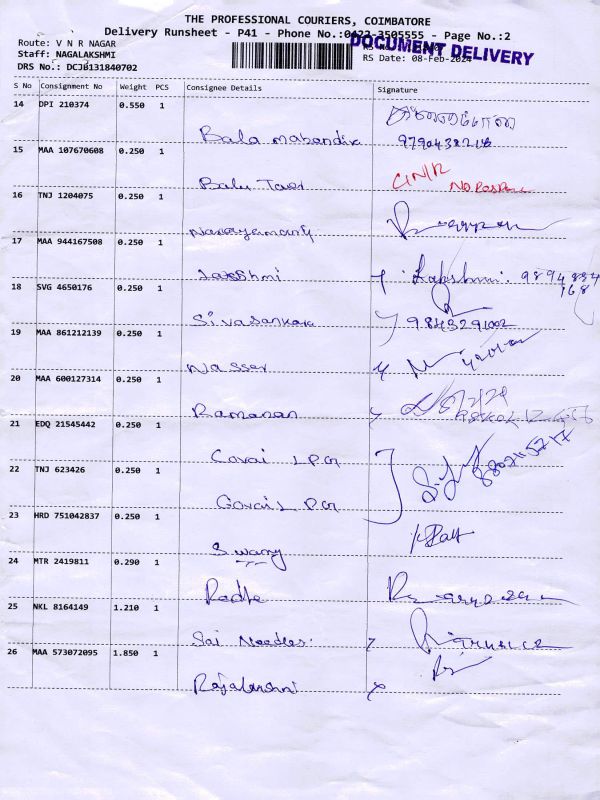 THE PROFESSIONAL COURIERS, COIMBATORE
Delivery Runsheet - P41 - Phone No.:0422-3505555 - Page No.:2
DOCUMENT DELIVERY
Route: V N R NAGAR
Staff: NAGALAKSHMI
RS Date: 08-Feb-2024
DRS No.: DCJB131840702
S No Consignment No Weight PCS Consignee Details Signature
14 DPI 210374 0.550 1
Bala 9790438218
15 MAA 107670608 0.250 1
Balu
16 TNJ 1204075 0.250 1
17 MAA 944167508 0.250 1
Lakshmi Lakshmi. 9894834
168
18 SVG 4650176 0.250 1
Sivasankara 9843291002
19 MAA 861212139 0.250 1
Nasser
20 MAA 600127314 0.250 1
Ramanan
21 EDQ 21545442 0.250 1
Covai LPG
22 TNJ 623426 0.250 1
Covai LPG
23 HRD 751042837 0.250 1
Swamy
24 MTR 2419811 0.290 1
Radhe
25 NKL 8164149 1.210 1
Sai Noodles.
26 MAA 573072095 1.850 1
Rajalakshmi